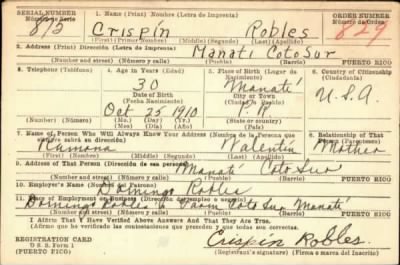 SERIAL NUMBER 1. Name (Print) Nombre (Letra de Imprenta) ORDER NUMBER
Número de Serie Número de Orden
815 Crispín Robles 829
(First) (Primer Nombre) (Middle) (Segundo) (Last) (Apellido)
2. Address (Print) Dirección (Letra de Imprenta)
Manatí Coto Sur
(Number and street) (Número y calle) (Town) (Pueblo) (Barrio) PUERTO RICO
3. Telephone (Teléfono) 4. Age in Years (Edad) 5. Place of Birth (Lugar de Nacimiento) 6. Country of Citizenship (Ciudadanía)
30 Manatí
Date of Birth City or Town
(Fecha Nacimiento) (Ciudad o Pueblo) U.S.A.
Oct 25 1910 P.R.
(Number) (Número) (Mo.) (Day) (Yr.)
7. Name of Person Who Will Always Know Your Address (Nombre de la Persona que siempre sabrá su dirección) 8. Relationship of That Person (Parentesco)
Ramona Valentin Mother
(First) (Primer Nombre) (Middle) (Segundo) (Last) (Apellido)
9. Address of That Person (Dirección de esa persona)
Manatí Coto Sur
(Number and street) (Número y calle) (Town) (Pueblo) (Barrio) PUERTO RICO
10. Employer's Name (Nombre del Patrono)
Domingo Robles
11. Place of Employment or Business
Domingo Robles Farm Coto Sur Manatí
(Number and street) (Número y calle) (Town) (Pueblo) (Barrio) PUERTO RICO
I Affirm That I Have Verified Above Answers And That They Are True.
(Afirmo que he verificado las contestaciones que preceden y que son ciertas.)
REGISTRATION CARD
D. S. S. Form 1
PUERTO RICO
Crispín Robles
(Registrant's signature) (Firma o marca del inscrito)